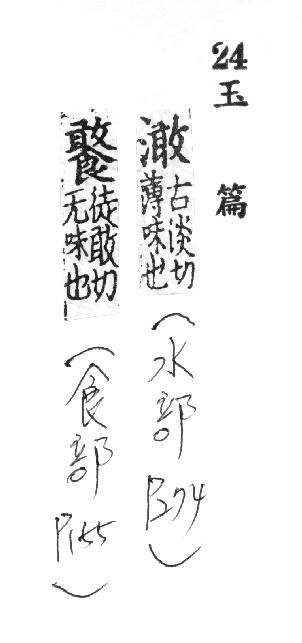 24
玉篇
澉古淡切
薄味也
(水部 P274)
徒敢切
无味也
(食部 P155)